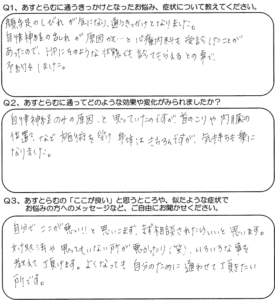 Q1、あすとらむに通うきっかけとなったお悩み、症状について教えてください。
顔半分のしびれが気になり、通うきっかけとなりました。
自律神経の乱れが原因かも…と心療内科も受診したことが
あったので、同じようような状態も診てもらえるとの事で、
予約をしました。
Q2、あすとらむに通ってどのような効果や変化がみられましたか?
自律神経のみの原因、と思っていたのですが、首のこりや内臓の
位置など施術を受け身体はもちろんですが、気持ちも楽に
なりました。
Q3、あすとらむの「ここが良い」と思うところや、似たような症状で
お悩みの方へのメッセージなど、ご自由にお聞かせください。
自分でここが悪い!!と思いこまず、まず相談されたらいいと思います。
思ってもいない所が悪かったり(笑)、いろいろな事を
教えて頂けます。よくなっても自分のために通わせて頂きたい
所です。